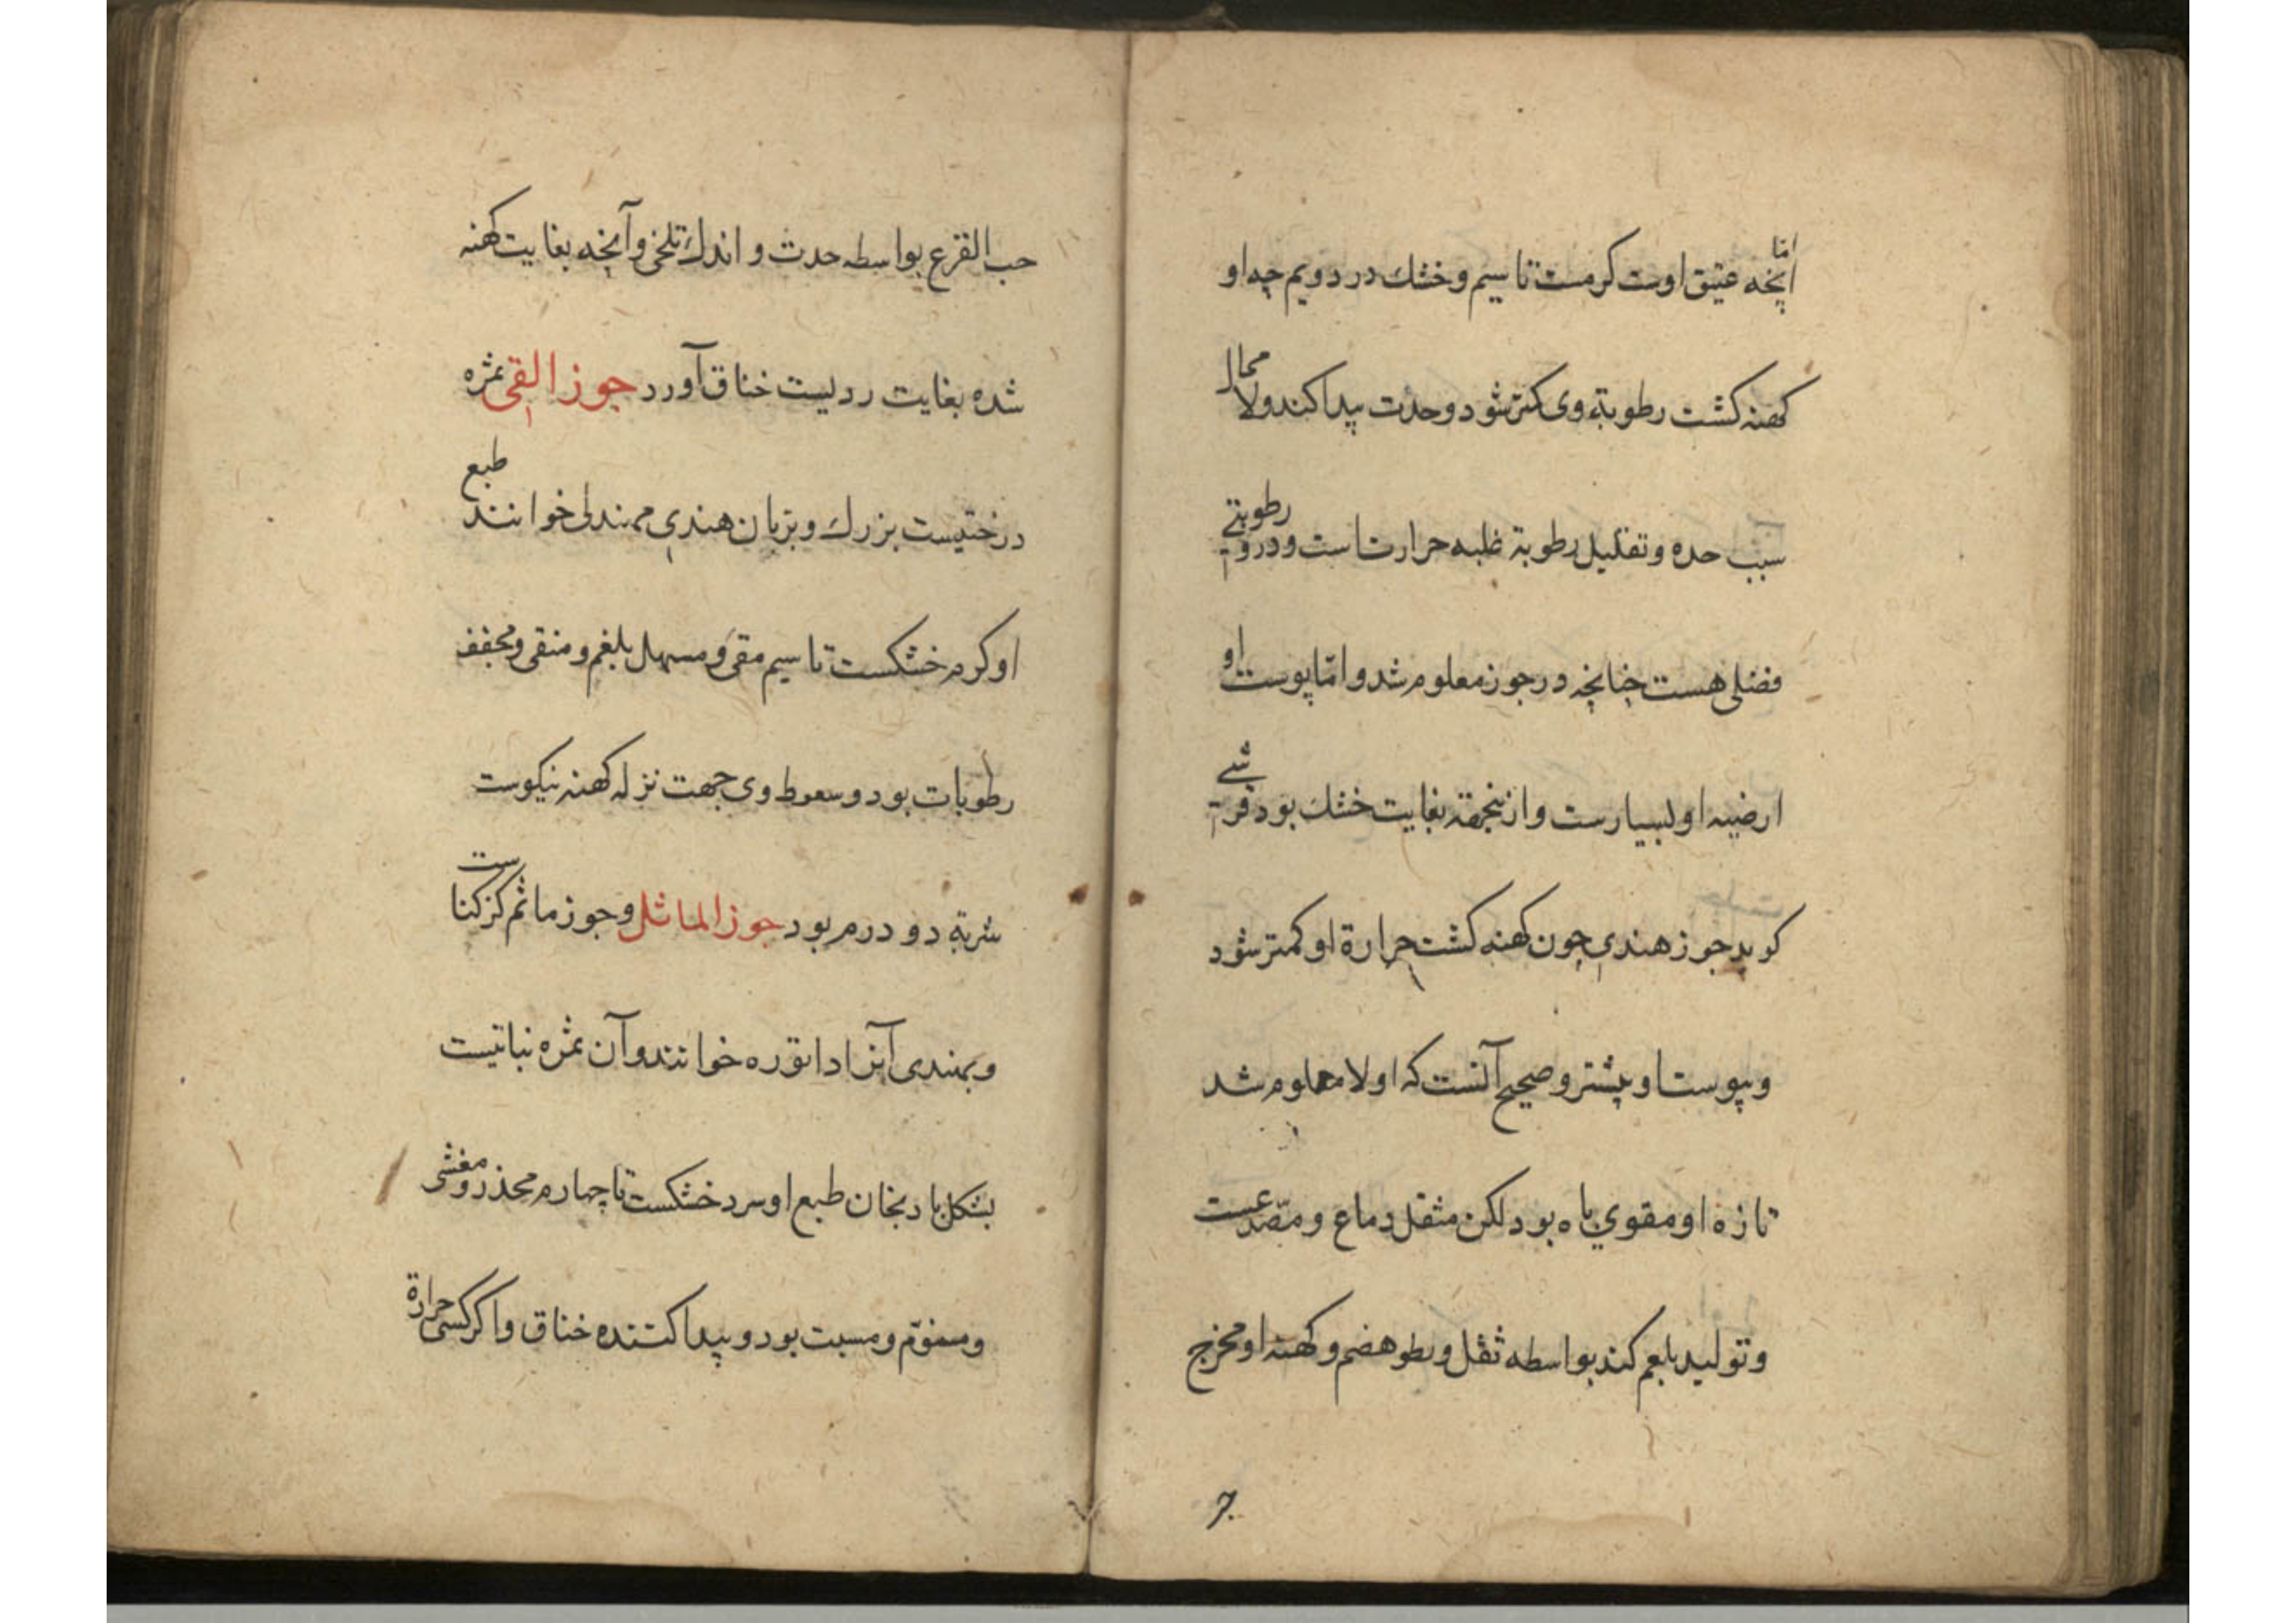 امّا
آنچه عتیق اوست کرمست تا سیم و خشك در دویم چه او
کهنه کشت رطوبة وی کمتر شود و حدت پیدا کند ولا محال
سبب حده و تقلیل رطوبة غلبه حرارت است و درو رطوبتے
فضلی هست چنانچه در جوز معلوم شد و امّا پوست او
ارضیه او بسیارست و ازینجهة بغایت خشك بود قرشے
کوید جوز هندی چون کهنه کشت حرارة او کمتر شود
و یبوست او بیشتر و صحیح آنست که اولا معلوم شد
تازه او مقوي باه بود لکن مثقل دماغ و مصدعست
و تولید بلغم کند بواسطه ثقل و بطو هضم و کهنه او مخرج
حب القرع بواسطه حدت و اندك تلخی و آنچه بغایت کهنه
شده بغایت ردیست خناق آورد جوز القی ثمره
درختیست بزرك و بزبان هندی خوانند طبع
او کرم خشکست تا سیم مقی و مسهل بلغم و منقی و مجفف
رطوبات بود و سعوط وی جهت نزله کهنه نیکوست
شربة دو درم بود جوز الماثل و جوز ماثم کزکناست
و بهندی آنرا داتوره خوانند و آن ثمره نباتیست
بشکل بادنجان طبع او سرد خشکست تا چهارم مخدر و مغشی
و منوّم و مسبت بود و پیدا کننده خناق و اکر کسی حرارة